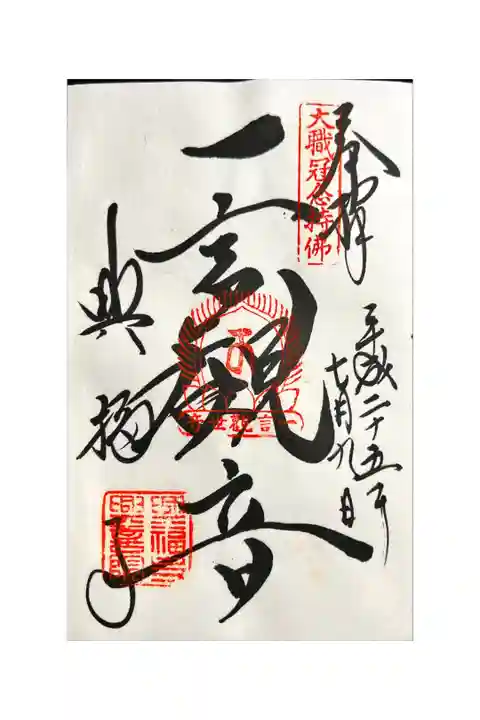 奉拝
大職冠念持佛
平成二十五年
七月九日
一言観音
一言観世音
興福寺